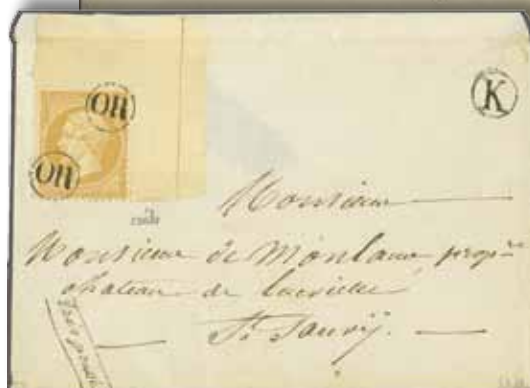 OR
K
OR
Monsieur
Monsieur de Monlaur prop^re
chateau de
St Sauvy.